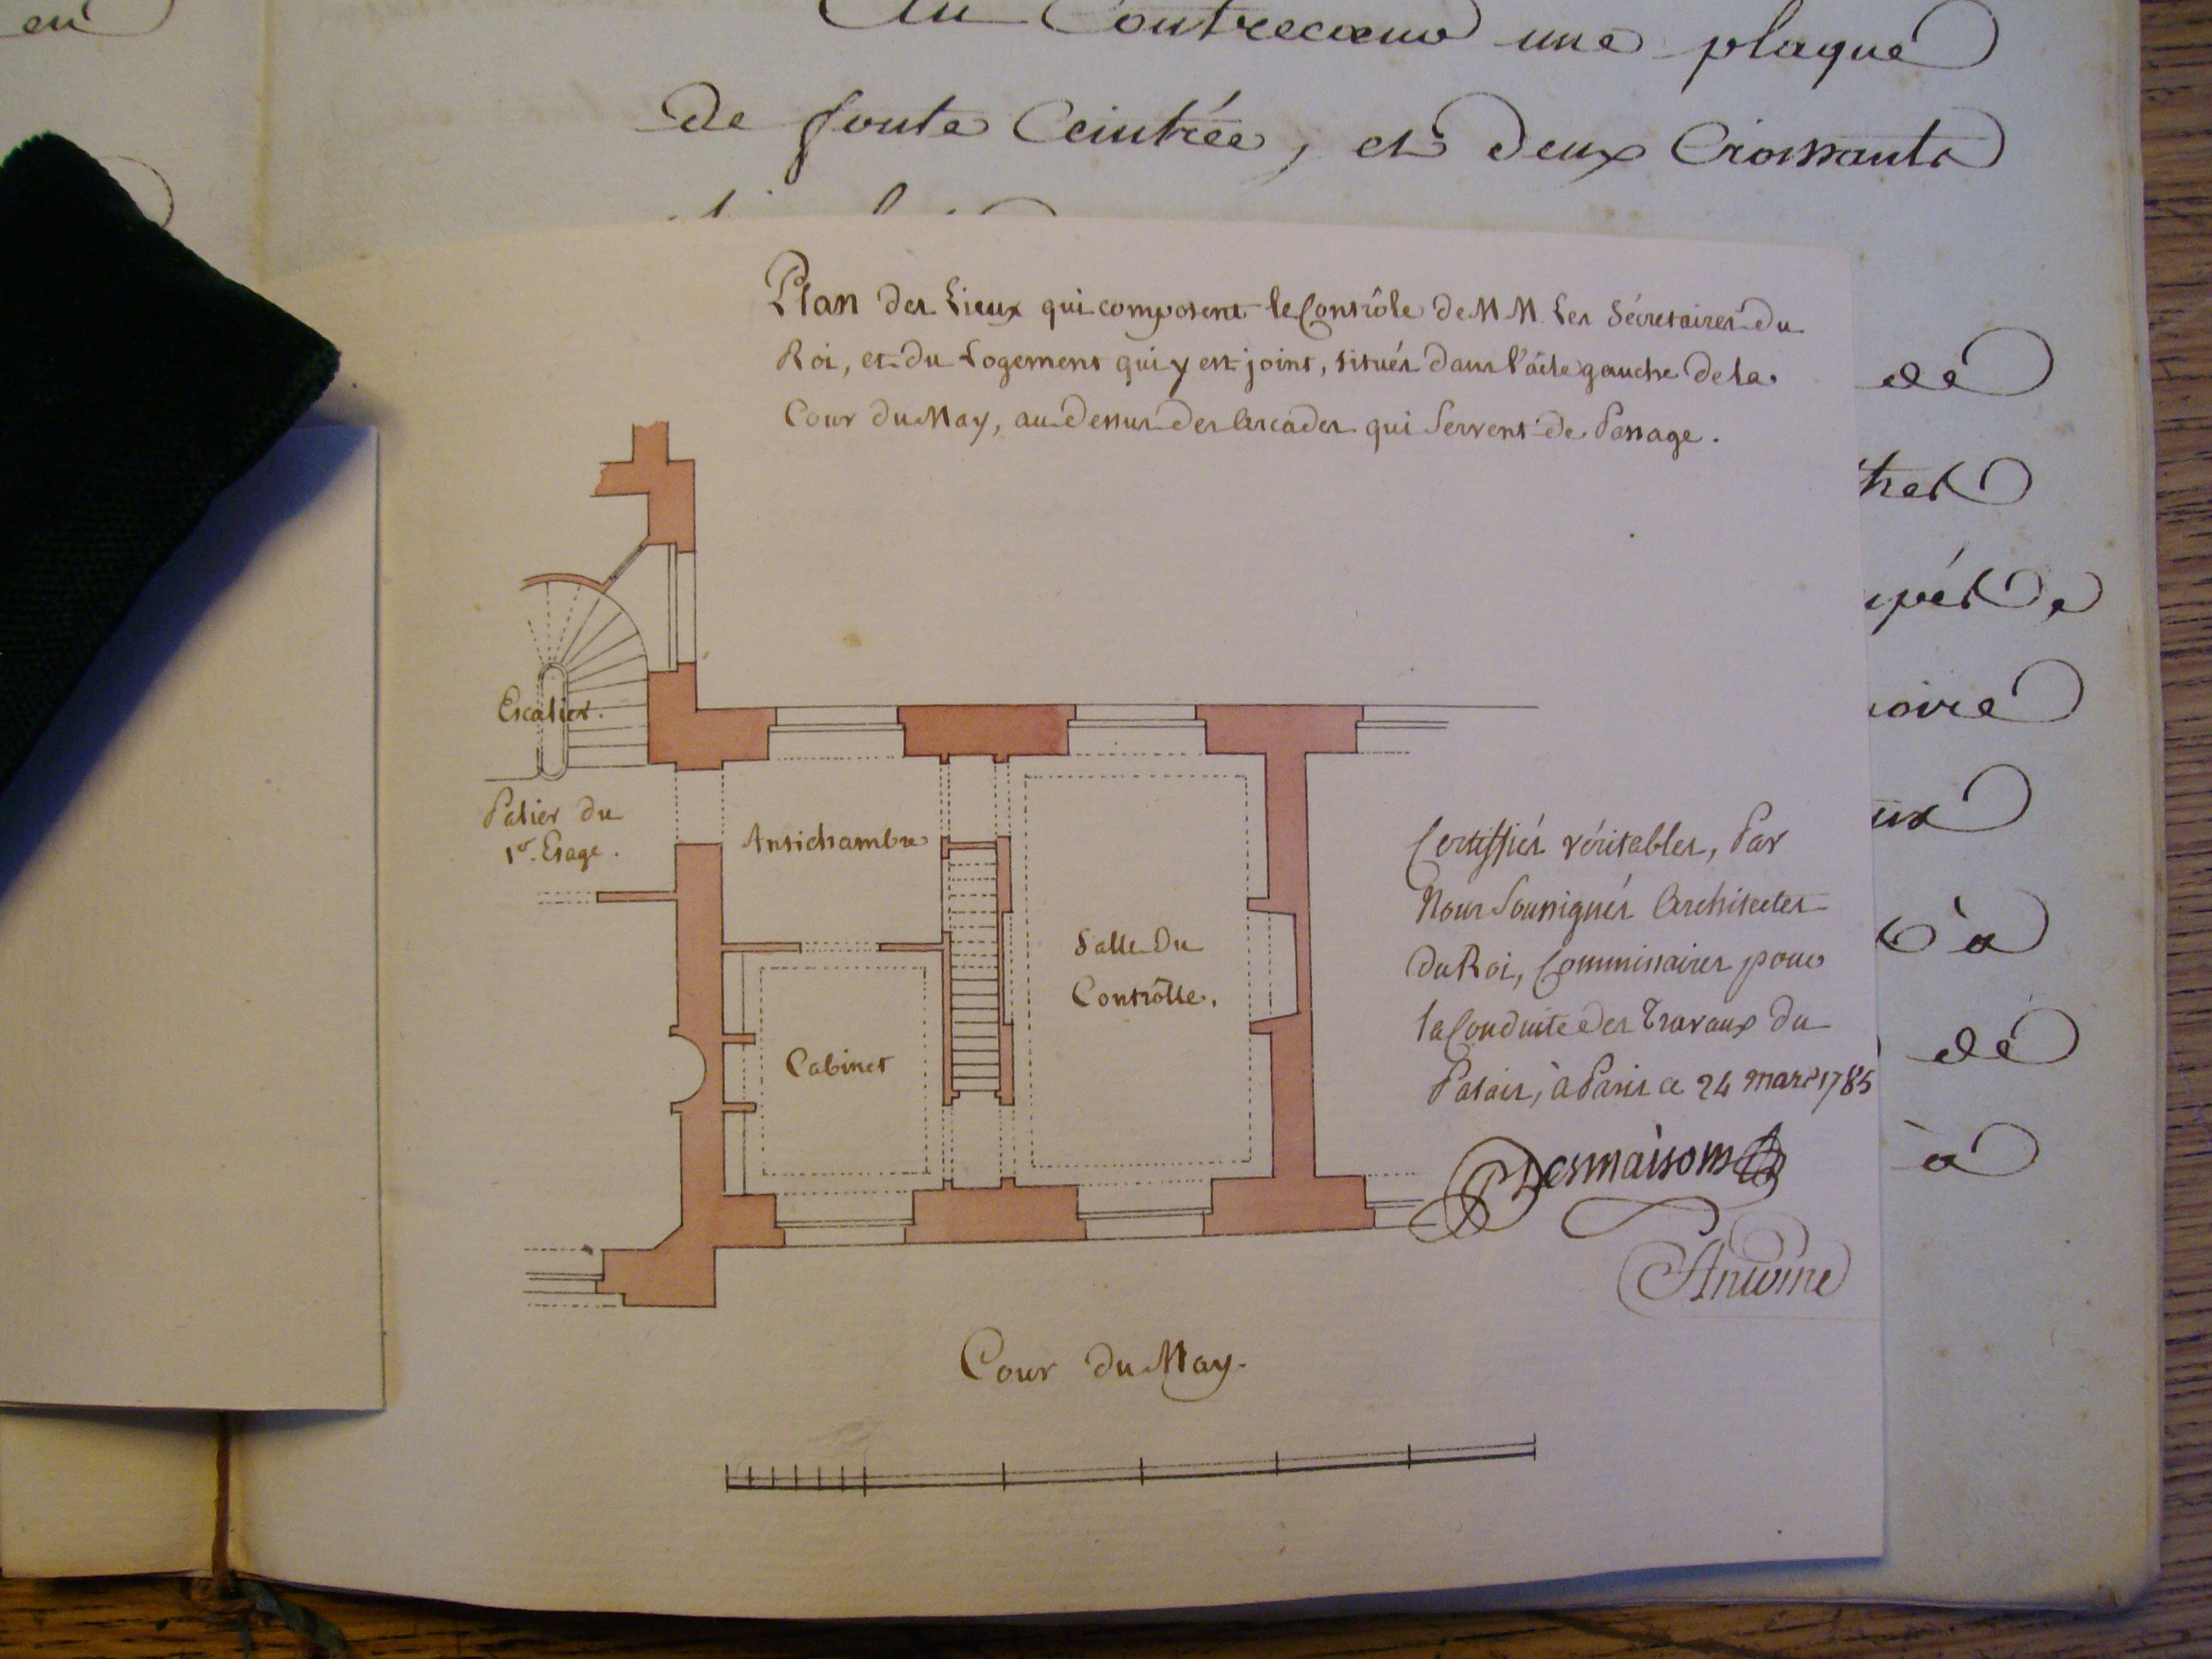 en
Au Contrecœur une plaque
de fonte Ceintrée, et deux Croissants
Plan des Lieux qui composent le Contrôle de MM. Les Sécretaires du
Roi, et du Logement qui y est joint, situés dans l'aîle gauche de la
Cour du May, au dessus des Arcades qui Servent de Passage.
de
Escalier.
Palier du
1er. Etage.
Antichambre
Salle Du
Contrôlle.
Cabinet
Certiffiés véritables, Par
Nous Soussignés Architectes
du Roi, Commissaires pour
la Conduite des Travaux du
Palais, à Paris ce 24 mars 1785
Desmaisons
Antoine
à
de
à
Cour du May.